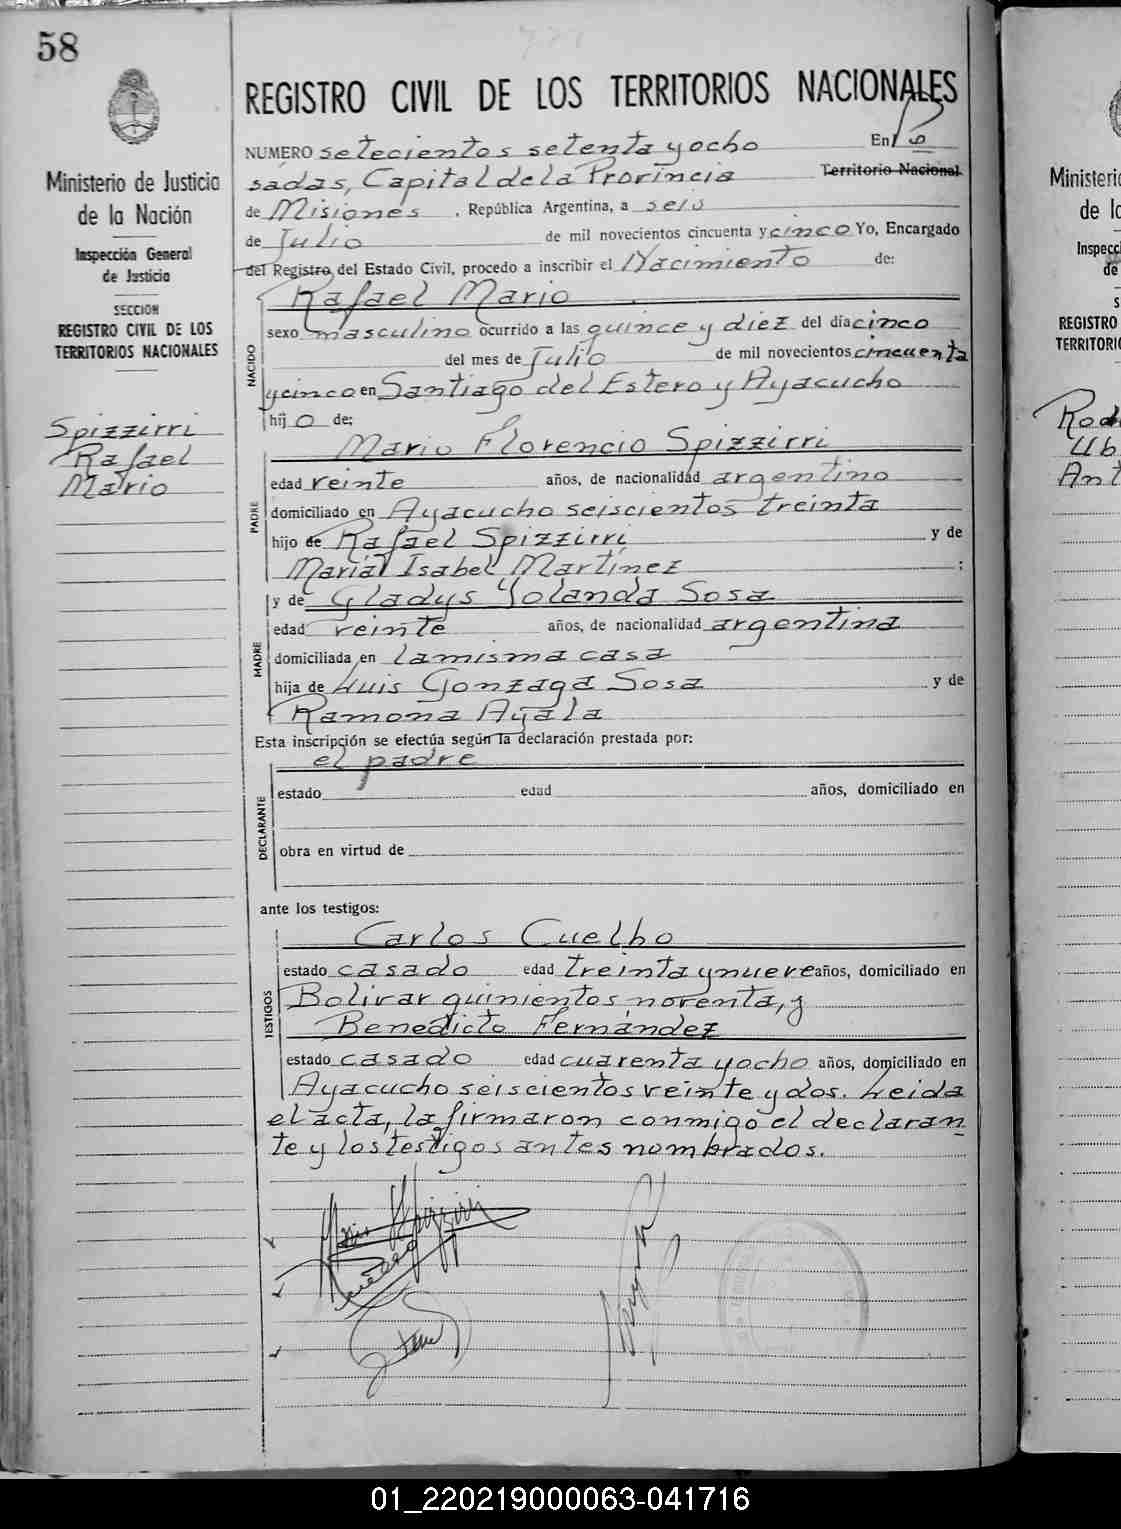 58
REGISTRO CIVIL DE LOS TERRITORIOS NACIONALES
Ministerio de Justicia
de la Nación
Inspección General
de Justicia
SECCION
REGISTRO CIVIL DE LOS
TERRITORIOS NACIONALES
Spizzirri
Rafael
Mario
NUMERO setecientos setenta y ocho En Po
sadas, Capital de la Provincia Territorio Nacional
de Misiones, República Argentina, a seis
de Julio de mil novecientos cincuenta y cinco Yo, Encargado
del Registro del Estado Civil, procedo a inscribir el Nacimiento de:
NACIDO
Rafael Mario
sexo masculino ocurrido a las quince y diez del día cinco
del mes de Julio de mil novecientos cincuenta
y cinco en Santiago del Estero y Ayacucho
hijo de:
PADRE
Mario Florencio Spizzirri
edad veinte años, de nacionalidad argentino
domiciliado en Ayacucho seiscientos treinta
hijo de Rafael Spizzirri y de
María Isabel Martínez ;
y de Gladys Yolanda Sosa
MADRE
edad veinte años, de nacionalidad argentina
domiciliada en la misma casa
hija de Luis Gonzaga Sosa y de
Ramona Ayala
Esta inscripción se efectúa según la declaración prestada por:
el padre
DECLARANTE
estado edad años, domiciliado en
obra en virtud de
ante los testigos:
TESTIGOS
Carlos Cuelho
estado casado edad treinta y nueve años, domiciliado en
Bolivar quinientos noventa, y
Benedicto Fernández
estado casado edad cuarenta y ocho años, domiciliado en
Ayacucho seiscientos veinte y dos. Leida
el acta, la firmaron conmigo el declaran
te y los testigos antes nombrados.
Mario Spizzirri
Ministerio
de la
Inspecc
de
S
REGISTRO
TERRITORIO
Rod
Ub
Ant
01_220219000063-041716